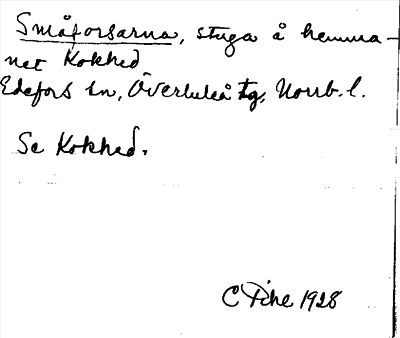 Småforsarna, stuga å hemma-
net Kokhed
Edefors sn, Överluleå tg, Norrb. l.
Se Kokhed.
C Pihl 1928